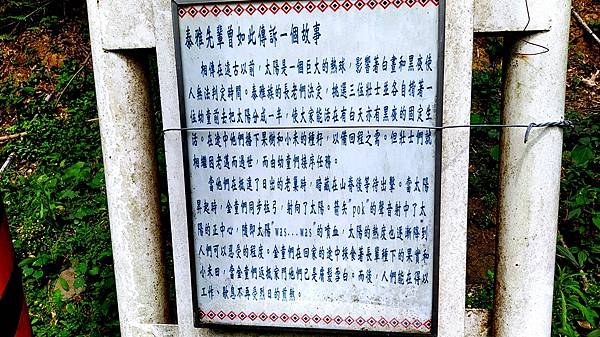 泰雅先輩曾如此傳訴一個故事
相傳在遠古以前,太陽是一個巨大的熱球,影響著白晝和黑夜使
人無法判定時間。泰雅族的長老們決定,挑選三位壯士並各自揹著一
位幼童前去把太陽分成一半,使大家能活在有白天亦有黑夜的固定生
活。在途中他們播下果樹和小米的種籽,以備回程之需。但壯士們就
相繼因老邁而過世,而由幼童們接序任務。
當他們在抵達了日出的老巢時,暗藏在山脊後等待出擊。當太陽
昇起時,金童們同步拉弓,射向了太陽。箭矢"pok"的聲音射中了太
陽的正中心,隨即太陽"was...was"的噴血,太陽的熱度也逐漸得到
人們可以忍受的程度。金童們在回家的途中採食著長輩種下的果實和
小米田,當金童們返抵家門他們已是鬍髮雪白。而後,人們能在得以
工作、歇息不再受烈日的煎熬。